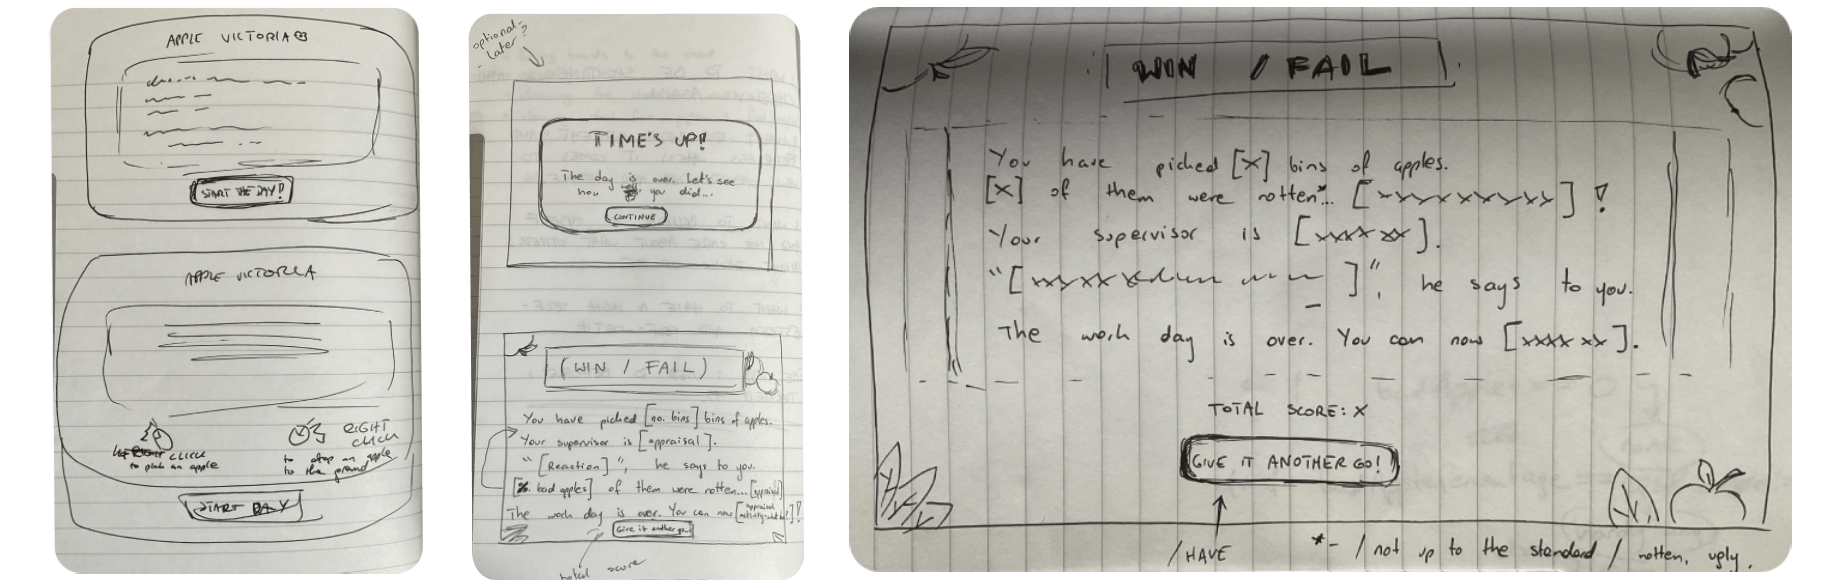 APPLE VICTORIA
START THE DAY!
APPLE VICTORIA
CLICK
to pick an apple
RIGHT
click
to drop an apple
to the ground
START DAY
optional?
- later
TIME'S UP!
The day is over. Let's see
how you did...
CONTINUE
(WIN / FAIL)
You have picked [no. bins] bins of apples.
Your supervisor is [appraisal].
"[Reaction]", he says to you.
[%. bad apples] of them were rotten... [appraisal]
The work day is over. You can now [appraisal
Give it another go!
total score
WIN / FAIL
You have picked [X] bins of apples.
[X] of them were rotten*... [xxxxxxxxx]!
Your supervisor is [xxxxxx].
"[xxxxxx]", he says to you.
The work day is over. You can now [xxxx xx].
TOTAL SCORE: X
GIVE IT ANOTHER GO!
/HAVE
*- / not up to the standard / rotten, ugly.